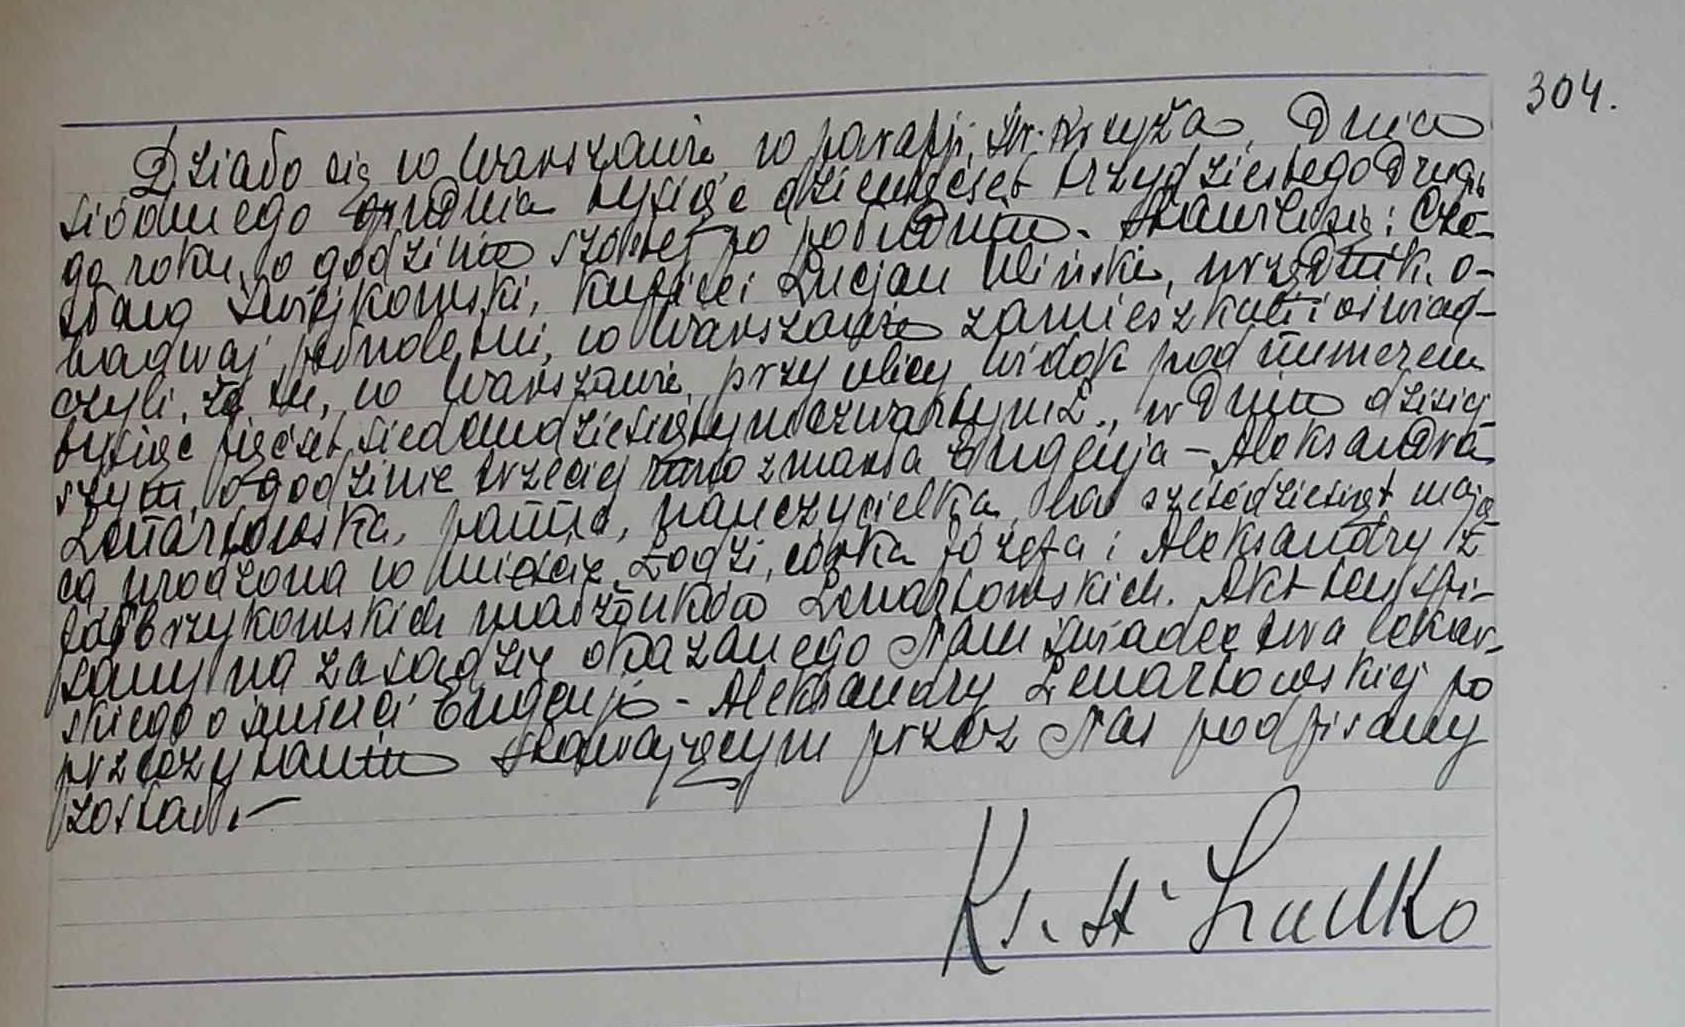 304.
Działo się w Warszawie w parafji Św. Krzyża, Dnia
siódmego grudnia tysiąc dziewięćset trzydziestego drugie
go roku, o godzinie szóstej po południu. Stawili się: Cze-
sław, kupiec i Lucjan Uliński, urzędnik, o-
badwaj pełnoletni, w Warszawie zamieszkali i oświad-
czyli, że tu, w Warszawie, przy ulicy Widok pod numerem
tysiąc pięćset siedemdziesiątym czwartym Ł., w dniu dzisiej
szym, o godzinie trzeciej rano zmarła Eugenja-Aleksandra
Lenartowska, panna, nauczycielka, lat sześćdziesiąt mają
ca, urodzona w mieście Łodzi, córka Józefa i Aleksandry z
małżonków Lenartowskich. Akt ten spi-
sany na zasadzie okazanego Nam świadectwa lekar-
skiego o śmierci Eugenji-Aleksandry Lenartowskiej po
przeczytaniu stawającym przez Nas podpisany
został.-
Ks. St.